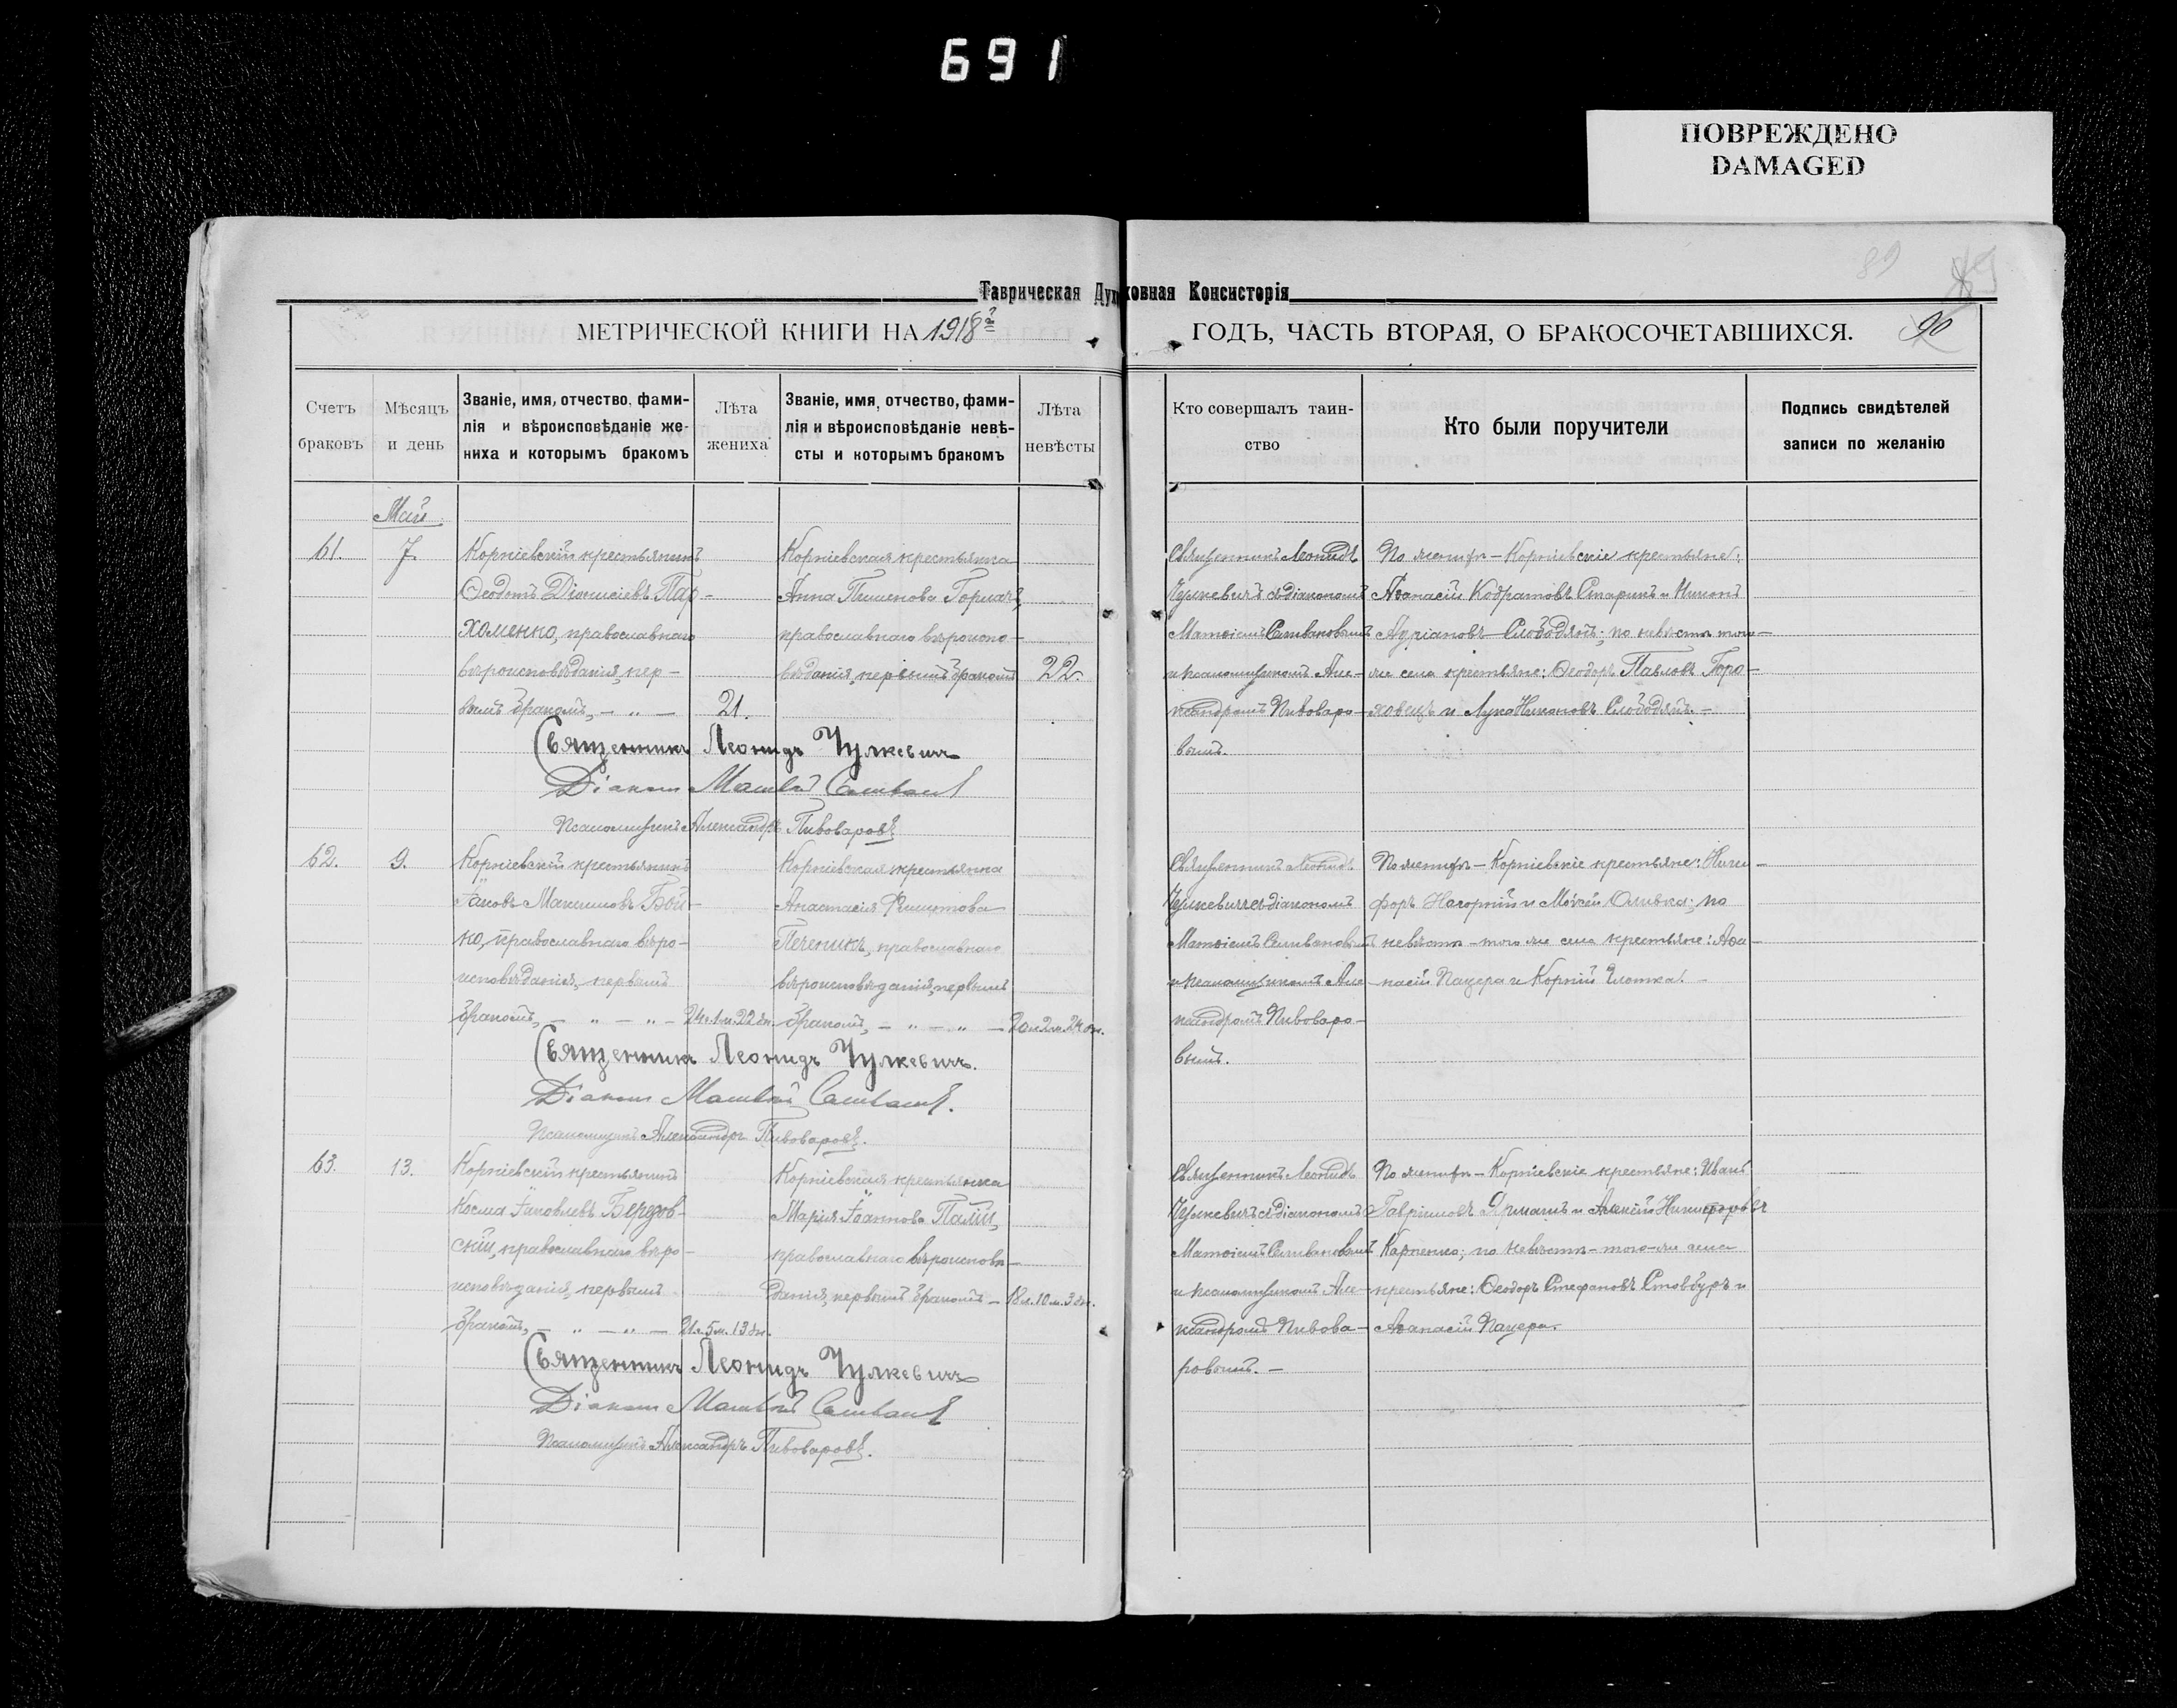 691
ПОВРЕЖДЕНО
DAMAGED
89
Таврическая Духовная Консисторія
МЕТРИЧЕСКОЙ КНИГИ НА 1918 ГОДЪ, ЧАСТЬ ВТОРАЯ, О БРАКОСОЧЕТАВШИХСЯ.
90
Счетъ браковъ
Мѣсяцъ и день
Званіе, имя, отчество, фами-
лія и вѣроисповѣданіе же-
ниха и которымъ бракомъ
Лѣта жениха
Званіе, имя, отчество, фами-
лія и вѣроисповѣданіе невѣ-
сты и которымъ бракомъ
Лѣта невѣсты
Кто совершалъ таин-
ство
Кто были поручители
Подпись свидѣтелей
записи по желанію
Май
61.
7.
Корніевскій крестьянинъ
Ѳеодотъ Діонисіевъ Пар-
хоменко, православнаго
вѣроисповѣданія, пер-
вымъ бракомъ, — „ —
21.
Корніевская крестьянка
Анна Пименова Гормачъ,
православнаго вѣроиспо-
вѣданія, первымъ бракомъ
22.
Священникъ Леонидъ
Чулкевичъ съ діакономъ
Матѳіемъ Селивановымъ
и псаломщикомъ Але-
ксандромъ Пивоваро-
вымъ.
По женихѣ — Корніевскіе крестьяне:
Аѳанасій Кодратовъ Старикъ и Никонъ
Адріановъ Слободянъ; по невѣстѣ того-
же села крестьяне: Ѳеодоръ Павловъ Горо-
ховецъ и Лука Никоновъ Слободянъ. —
Священникъ Леонидъ Чулкевичъ
Діаконъ Матвѣй Селивановъ
Псаломщикъ Александръ Пивоваровъ
62.
9.
Корніевскій крестьянинъ
Іаковъ Максимовъ Бой-
ко, православнаго вѣро-
исповѣданія, первымъ
бракомъ, — „ — „ —
24л. 1м. 22дн.
Корніевская крестьянка
Анастасія Филитова
Печеникъ, православнаго
вѣроисповѣданія, первымъ
бракомъ, — „ — „ —
20л. 2м. 24дн.
Священникъ Леонидъ
Чулкевичъ съ діакономъ
Матѳіемъ Селивановымъ
и псаломщикомъ Але-
ксандромъ Пивоваро-
вымъ.
По женихѣ — Корніевскіе крестьяне: Ники-
форъ Нагорный и Моѵсей Оливка; по
невѣстѣ — того же села крестьяне: Аѳа-
насій Пацера и Корній Глотка. —
Священникъ Леонидъ Чулкевичъ.
Діаконъ Матвѣй Селивановъ.
Псаломщикъ Александръ Пивоваровъ.
63.
13.
Корніевскій крестьянинъ
Косма Іаковлевъ Бередов-
скій, православнаго вѣро-
исповѣданія, первымъ
бракомъ, — „ — „ —
21л. 5м. 13дн.
Корніевская крестьянка
Марія Іоаннова Палій,
православнаго вѣроисповѣ-
данія, первымъ бракомъ —
18л. 10м. 3дн.
Священникъ Леонидъ
Чулкевичъ съ діакономъ
Матѳіемъ Селивановымъ
и псаломщикомъ Але-
ксандромъ Пивова-
ровымъ. —
По женихѣ — Корніевскіе крестьяне: Иванъ
Гавріиловъ Ярмашъ и Алексій Никифоровъ
Карпенко; по невѣстѣ — того-же села
крестьяне: Ѳеодоръ Стефановъ Стовбуръ и
Аѳанасій Пацера.
Священникъ Леонидъ Чулкевичъ
Діаконъ Матвѣй Селивановъ
Псаломщикъ Александръ Пивоваровъ.